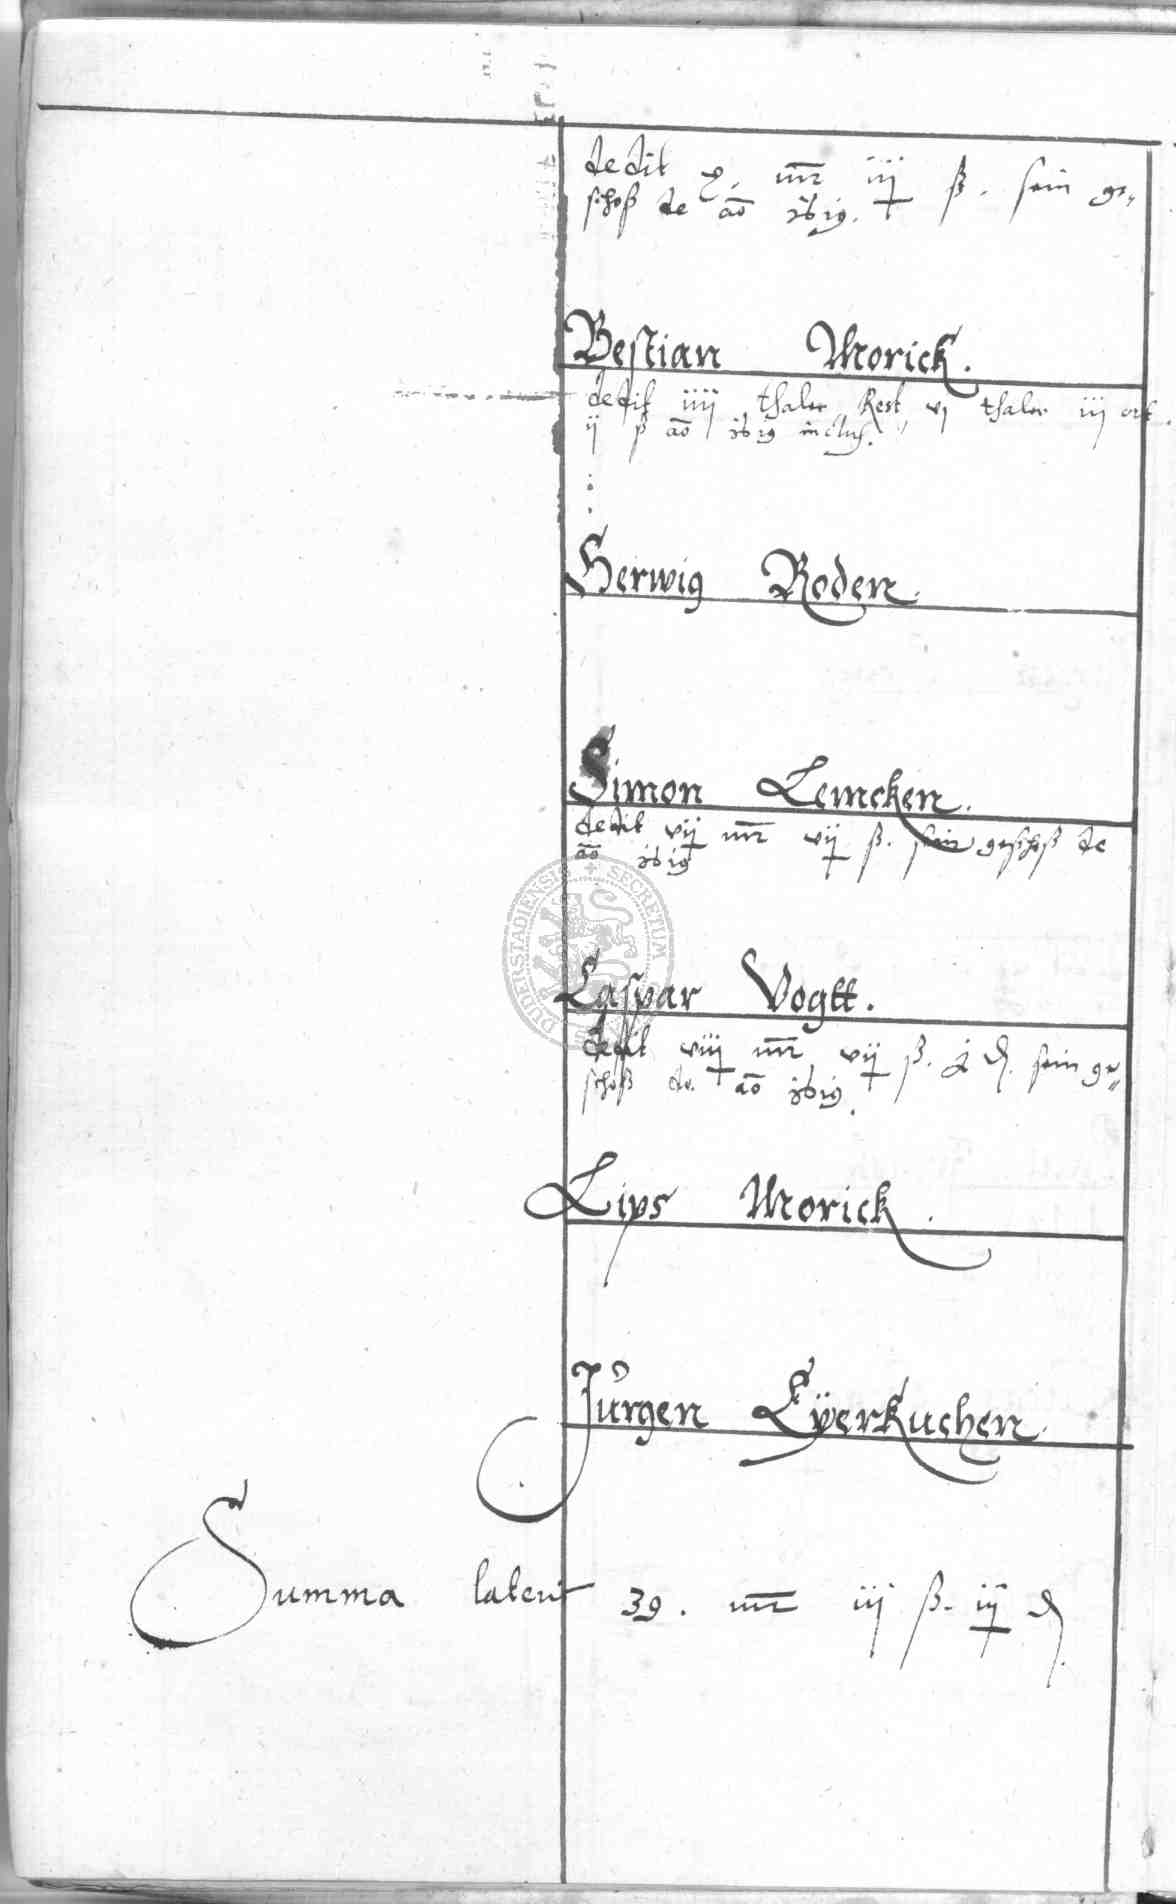 dedit x. mr iij ß. sein ge-
schoß de ao 1619.
Bestian Morick.
dedit iiij thaler Rest vj thaler iij ort
ij ß ao 1619 inclus.
Herwig Roden.
Simon Lemcken.
dedit vij mr vij ß. sein geschoß de
ao 1619
Caspar Vogtt.
dedit viij mr vij ß. j ₰. sein ge-
schoß de ao 1619.
Lips Morick.
Jürgen Eÿerkuchen.
Summa lateris 39. mr iij ß. iij ₰
DUDERSTADIENSIS + SECRETUM